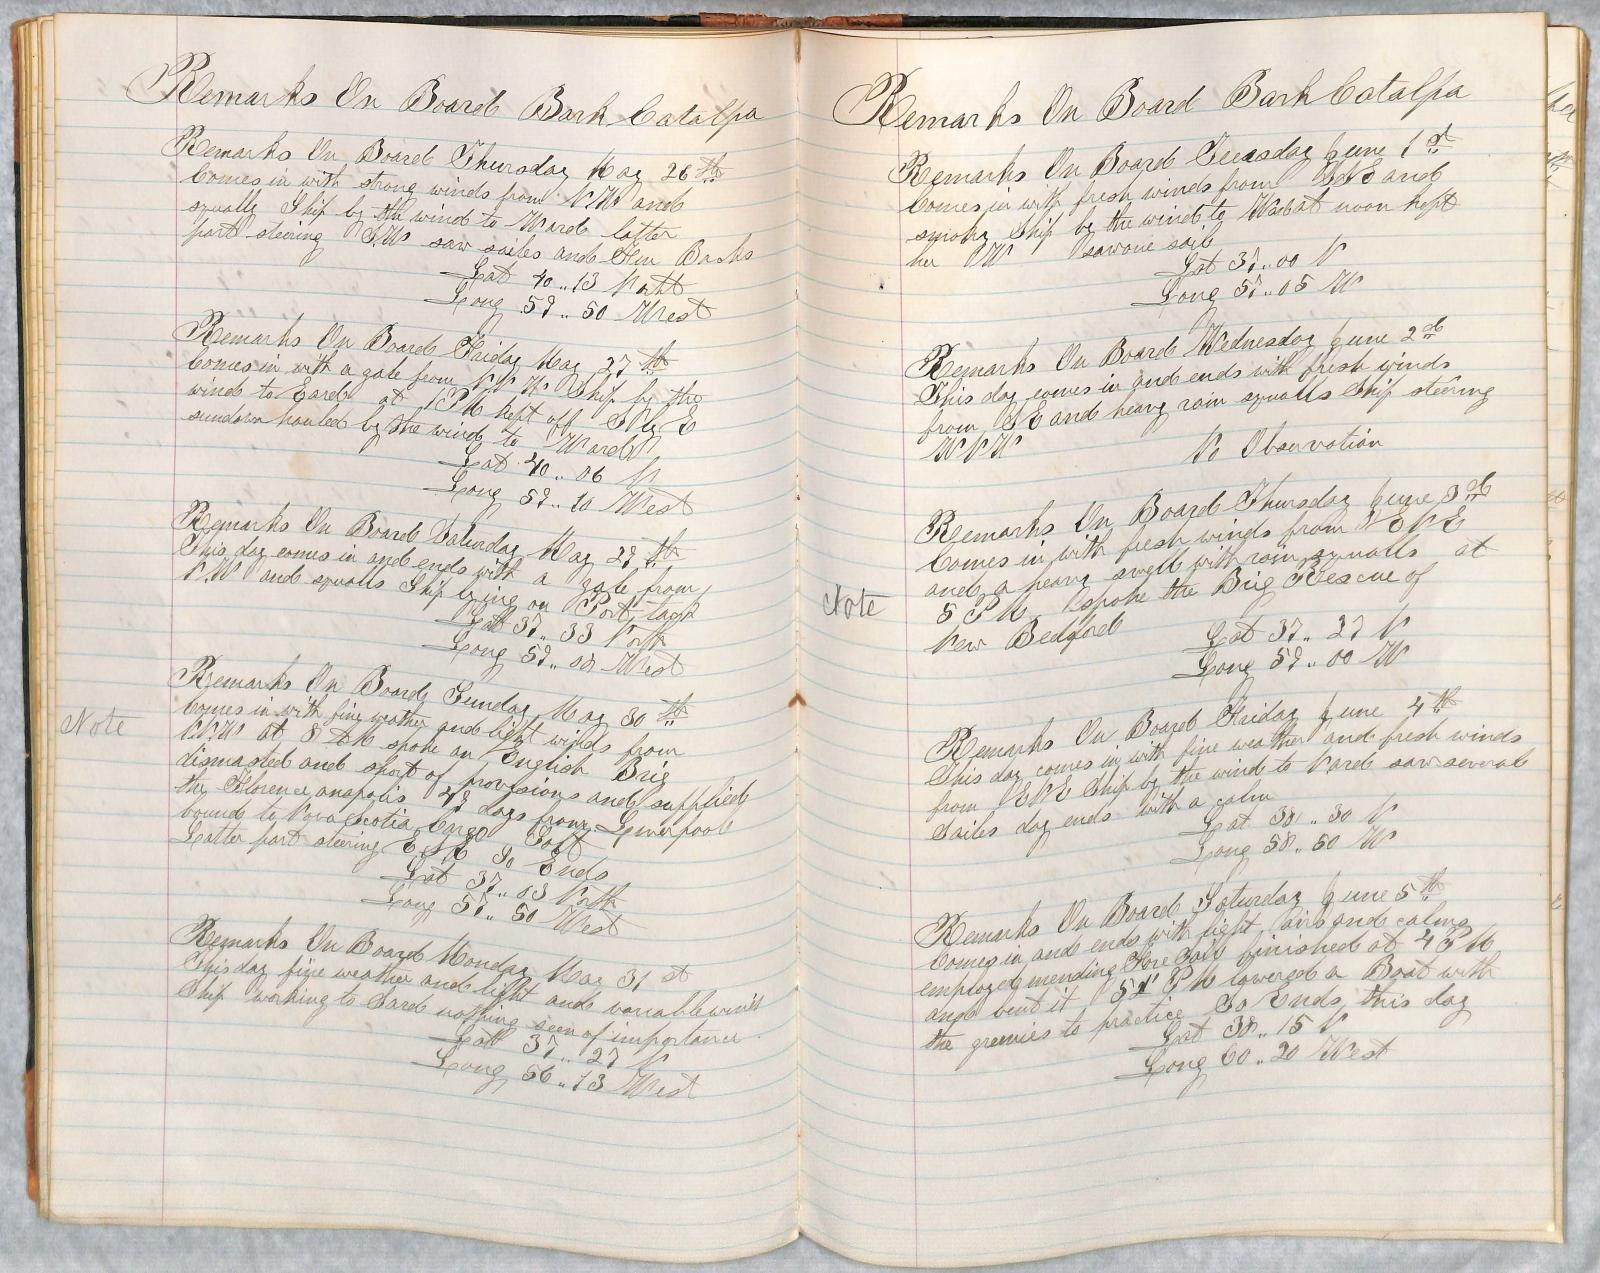 Remarks On Board Bark Catalpa
Remarks On Board Thursday May 26th
Comes in with strong winds from N.W and
squally Ship by the wind to Ward latter
part steering S.W saw sailes and Fin Backs
Lat 40..13 North
Long 59..50 West
Remarks On Board Friday May 27th
Comes in with a gale from N.W Ship by the
wind to Eard at 1 P M kept off S by E
sundown hauled by the wind to Ward
Lat 40..06 N
Long 59..10 West
Remarks On Board Saturday May 29th
This day comes in and ends with a gale from
N.W and squalls Ship lying on Port tack
Lat 37..33 North
Long 59..08 West
Note
Remarks On Board Sunday May 30th
Comes in with fine weather and light winds from
N.W at 8 A M spoke an English Brig
dismasted and short of provisions and supplied
the Florence anapolis 43 days from Liverpool
bound to Nova Scotia Cargo Salt
Latter part steering E S E So Ends
Lat 37..03 North
Long 57..50 West
Remarks On Board Monday May 31st
This day fine weather and light and variable winds
Ship working to Sard nothing seen of importance
Lat 37..27 N
Long 56..13 West
Remarks On Board Bark Catalpa
Remarks On Board Tuesday June 1st
Comes in with fresh winds from and
smoky Ship by the wind to Ward at noon kept
her W saw one sail
Lat 37..00 N
Long 57..05 W
Remarks On Board Wednesday June 2d
This day comes in and ends with fresh winds
from S E and heavy rain squalls Ship steering
W N W No Observation
Remarks On Board Thursday June 3d
Comes in with fresh winds from E N E
and a heavy swell with rain squalls at
Note
5 P M spoke the Brig Rescue of
New Bedford
Lat 37..27 N
Long 59..00 W
Remarks On Board Friday June 4th
This day comes in with fine weather and fresh winds
from E N E Ship by the wind to Nard saw several
Sailes day ends with a calm
Lat 38..30 N
Long 58..50 W
Remarks On Board Saturday June 5th
Comes in and ends with light airs and calms
employed mending Fore Sail finished at 4 P M
and bent it 5 P M lowered a Boat with
the greenies to practice So Ends this day
Lat 38..15 N
Long 60..20 West